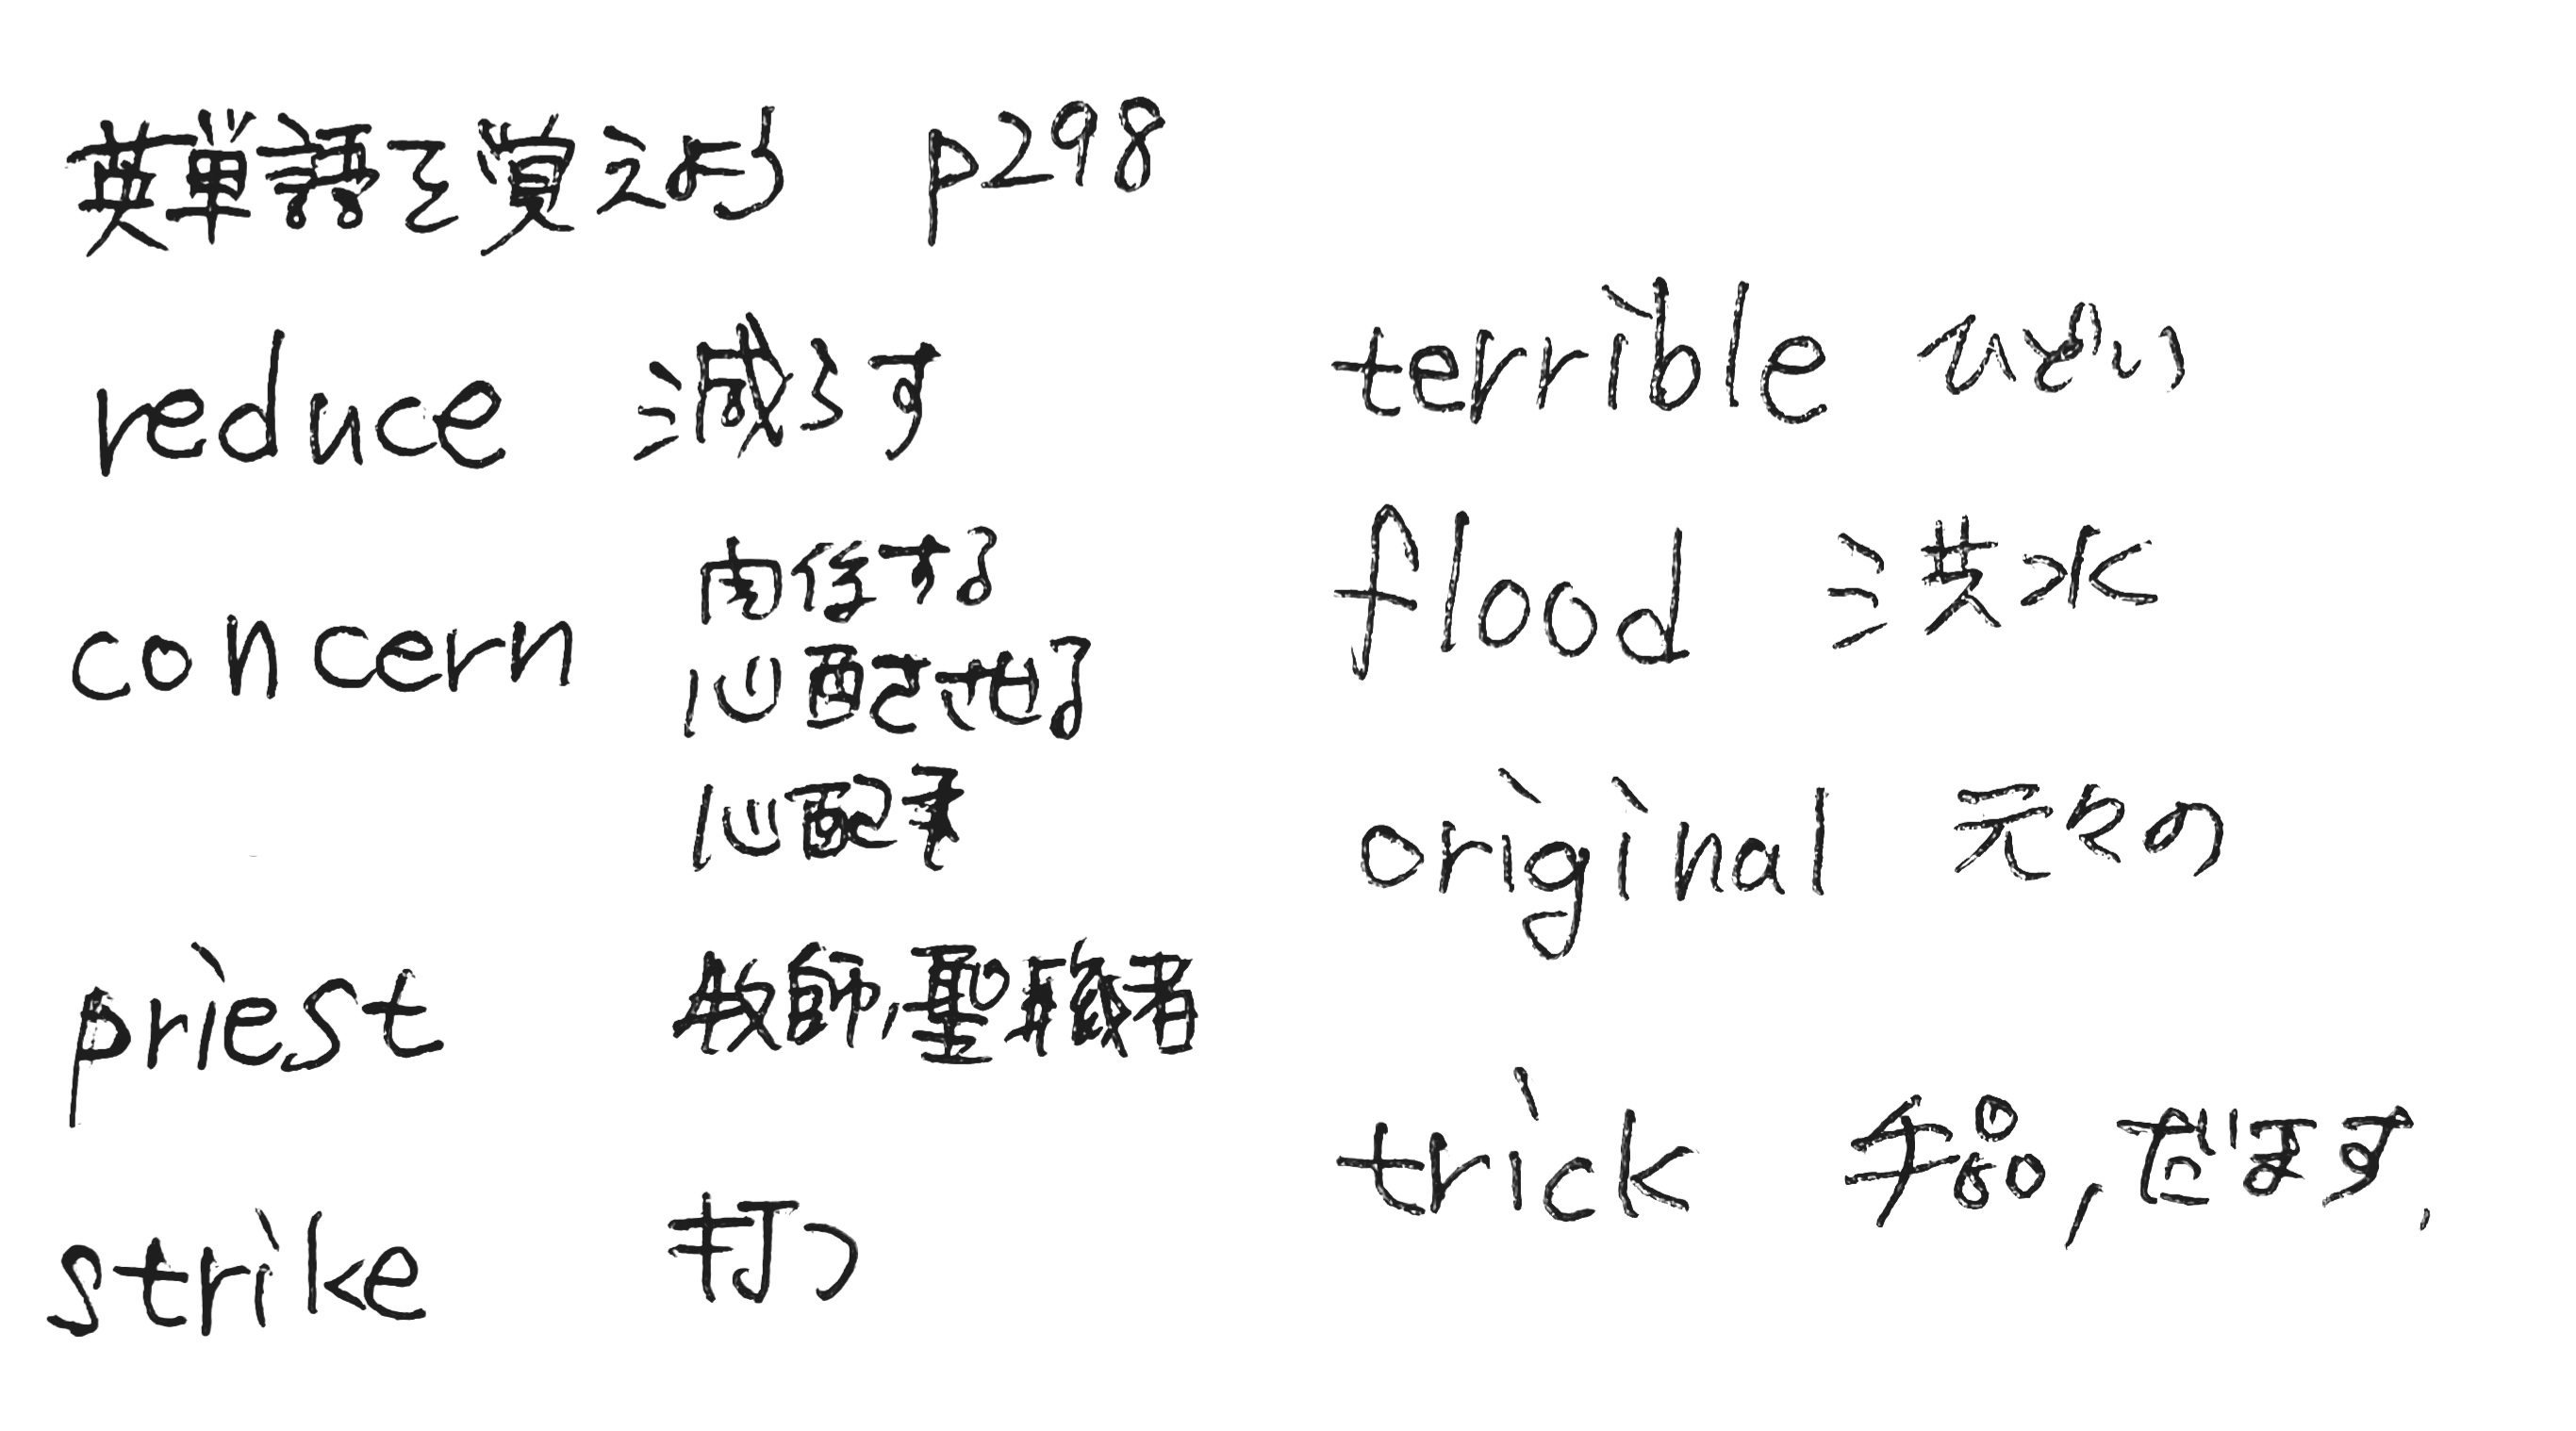 英単語を覚えよう p298
reduce 減らす
concern 関係する
心配させる
心配事
priest 牧師,聖職者
strike 打つ
terrible ひどい
flood 洪水
original 元々の
trick 手品,だます,